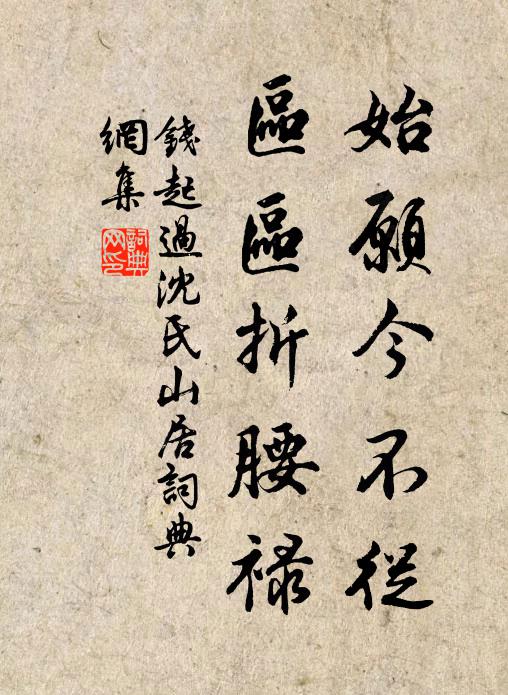 始願今不從
區區折腰祿
錢起過沈氏山居詞典
網集
詞典網印